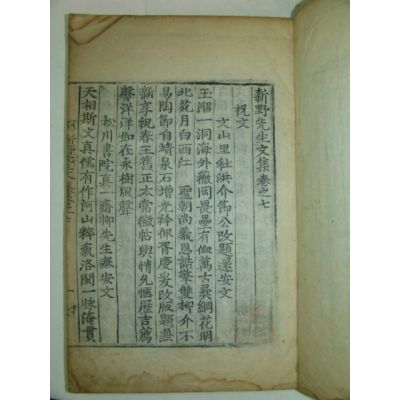 新野先生文集卷之七
祝文
文山里社洪介節公改題還安文
玉溜一洞海外 岡畏壘有血萬古彛綱花明
北苑月白西江 聖朝尚義恩誥 雙柳介不
易陶節自靖泉石增光衿佩胥慶爰改版題
新享祝春王舊正太常徽帖輿情允愜歷吉薦
馨洋洋如在永樹風聲
松川書院真一齋柳先生奉安文
天相斯文真儒有作河山粹氣洛閩一脉淹貫